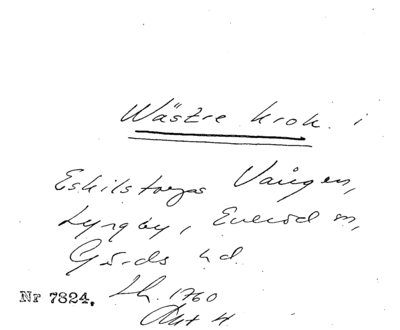 Wästre krok i
Eskilstorps Vången,
Lyngby, Everöd sn,
Gärds hd.
Nr 7824. Lh. 1760
Akt 4